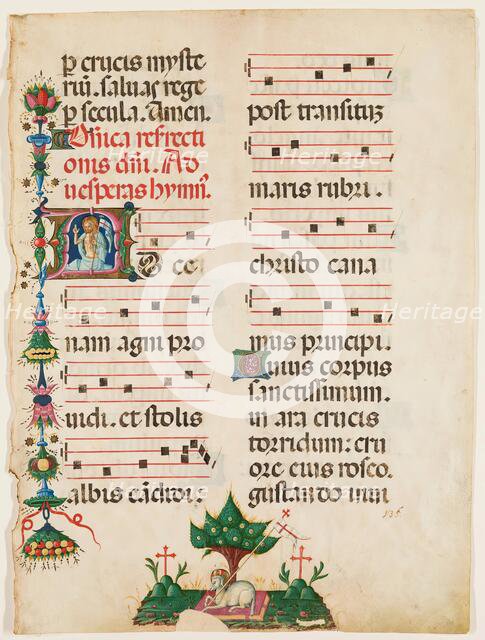 p crucis myste
riū. saluas rege
p secula. Amen.
Dn̄ica resrecti
onis dn̄i. Ad
uesperas hymn̄.
Ad ce
nam agni pro
uidi. et stolis
albis cādidi.
post transituȝ
maris rubri.
christo cana
mus principi.
Cuius corpus
sanctissimum.
in ara crucis
torridum: cru
ore eius roseo.
gustan do uiui
Heritage
Heritage
Heritage